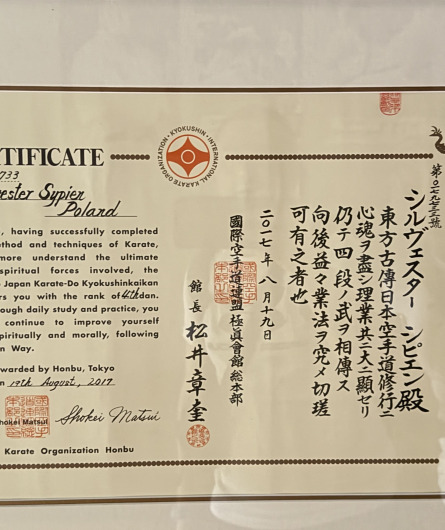 TIFICATE
733
ester Sypien
Poland
, having successfully completed
ethod and techniques of Karate,
more understand the ultimate
spiritual forces involved, the
e Japan Karate-Do Kyokushinkaikan
ers you with the rank of 4th dan.
ough daily study and practice, you
continue to improve yourself
piritually and morally, following
en Way.
warded by Honbu, Tokyo
on 19th August, 2017
hokei Matsui
Shokei Matsui
Karate Organization Honbu
KYOKUSHIN · INTERNATIONAL KARATE ORGANIZATION
第〇二九七三三號
シルヴェスター シピェン殿
東方古傳日本空手道修行ニ
心魂ヲ盡シ理業共ニ大ニ顕セリ
仍テ四段ノ武ヲ相傳ス
向後益々業法ヲ究メ切瑳
可有之者也
二〇一七年八月十九日
國際空手道連盟極真會館総本部
館長 松井章奎